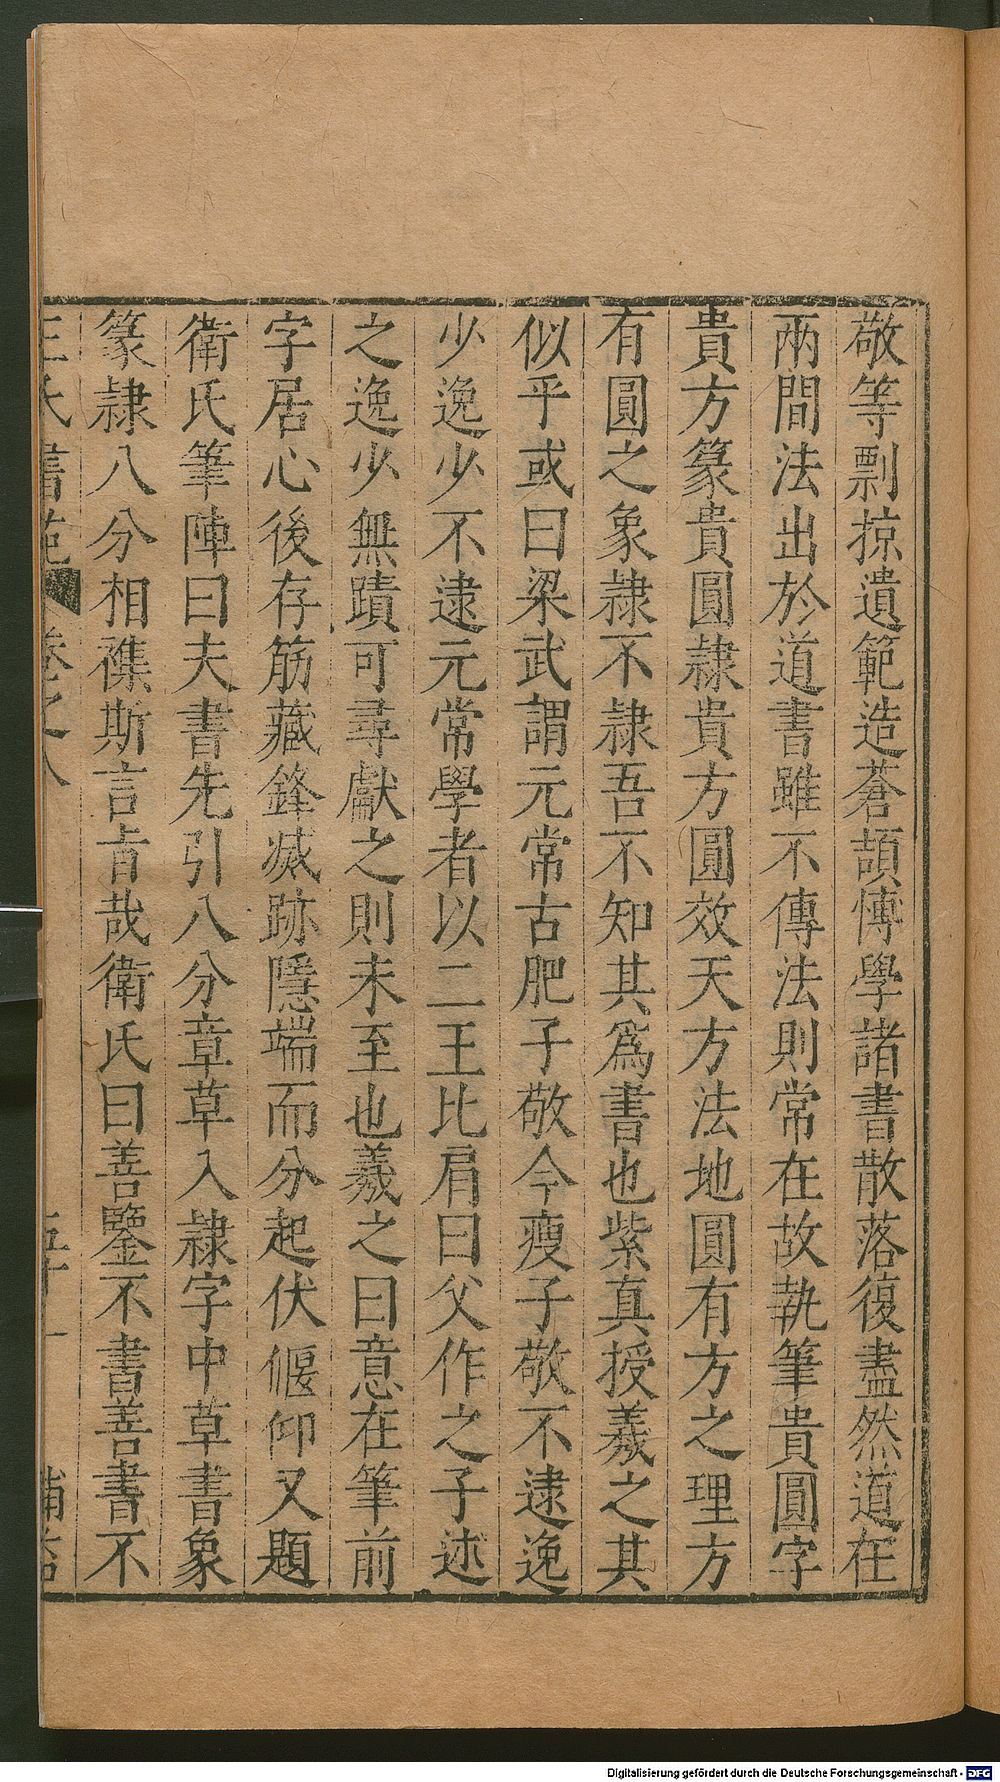 敬等剽掠遺範造蒼頡愽學諸書散落復盡然道在
兩間法出於道書雖不傳法則常在故執筆貴圓字
貴方篆貴圓隷貴方圓效天方法地圓有方之理方
有圓之象隷不隷吾不知其爲書也紫真授羲之其
似乎或曰梁武謂元常古肥子敬今瘦子敬不逮逸
少逸少不逮元常學者以二王比肩曰父作之子述
之逸少無蹟可尋獻之則未至也羲之曰意在筆前
字居心後存筋藏鋒滅跡隱端而分起伏偃仰又題
衛氏筆陣曰夫書先引八分章草入隷字中草書象
篆隷八分相襍斯言旨哉衛氏曰善鑒不書善書不
王氏書苑 卷之八 五十一
Digitalisierung gefördert durch die Deutsche Forschungsgemeinschaft - DFG